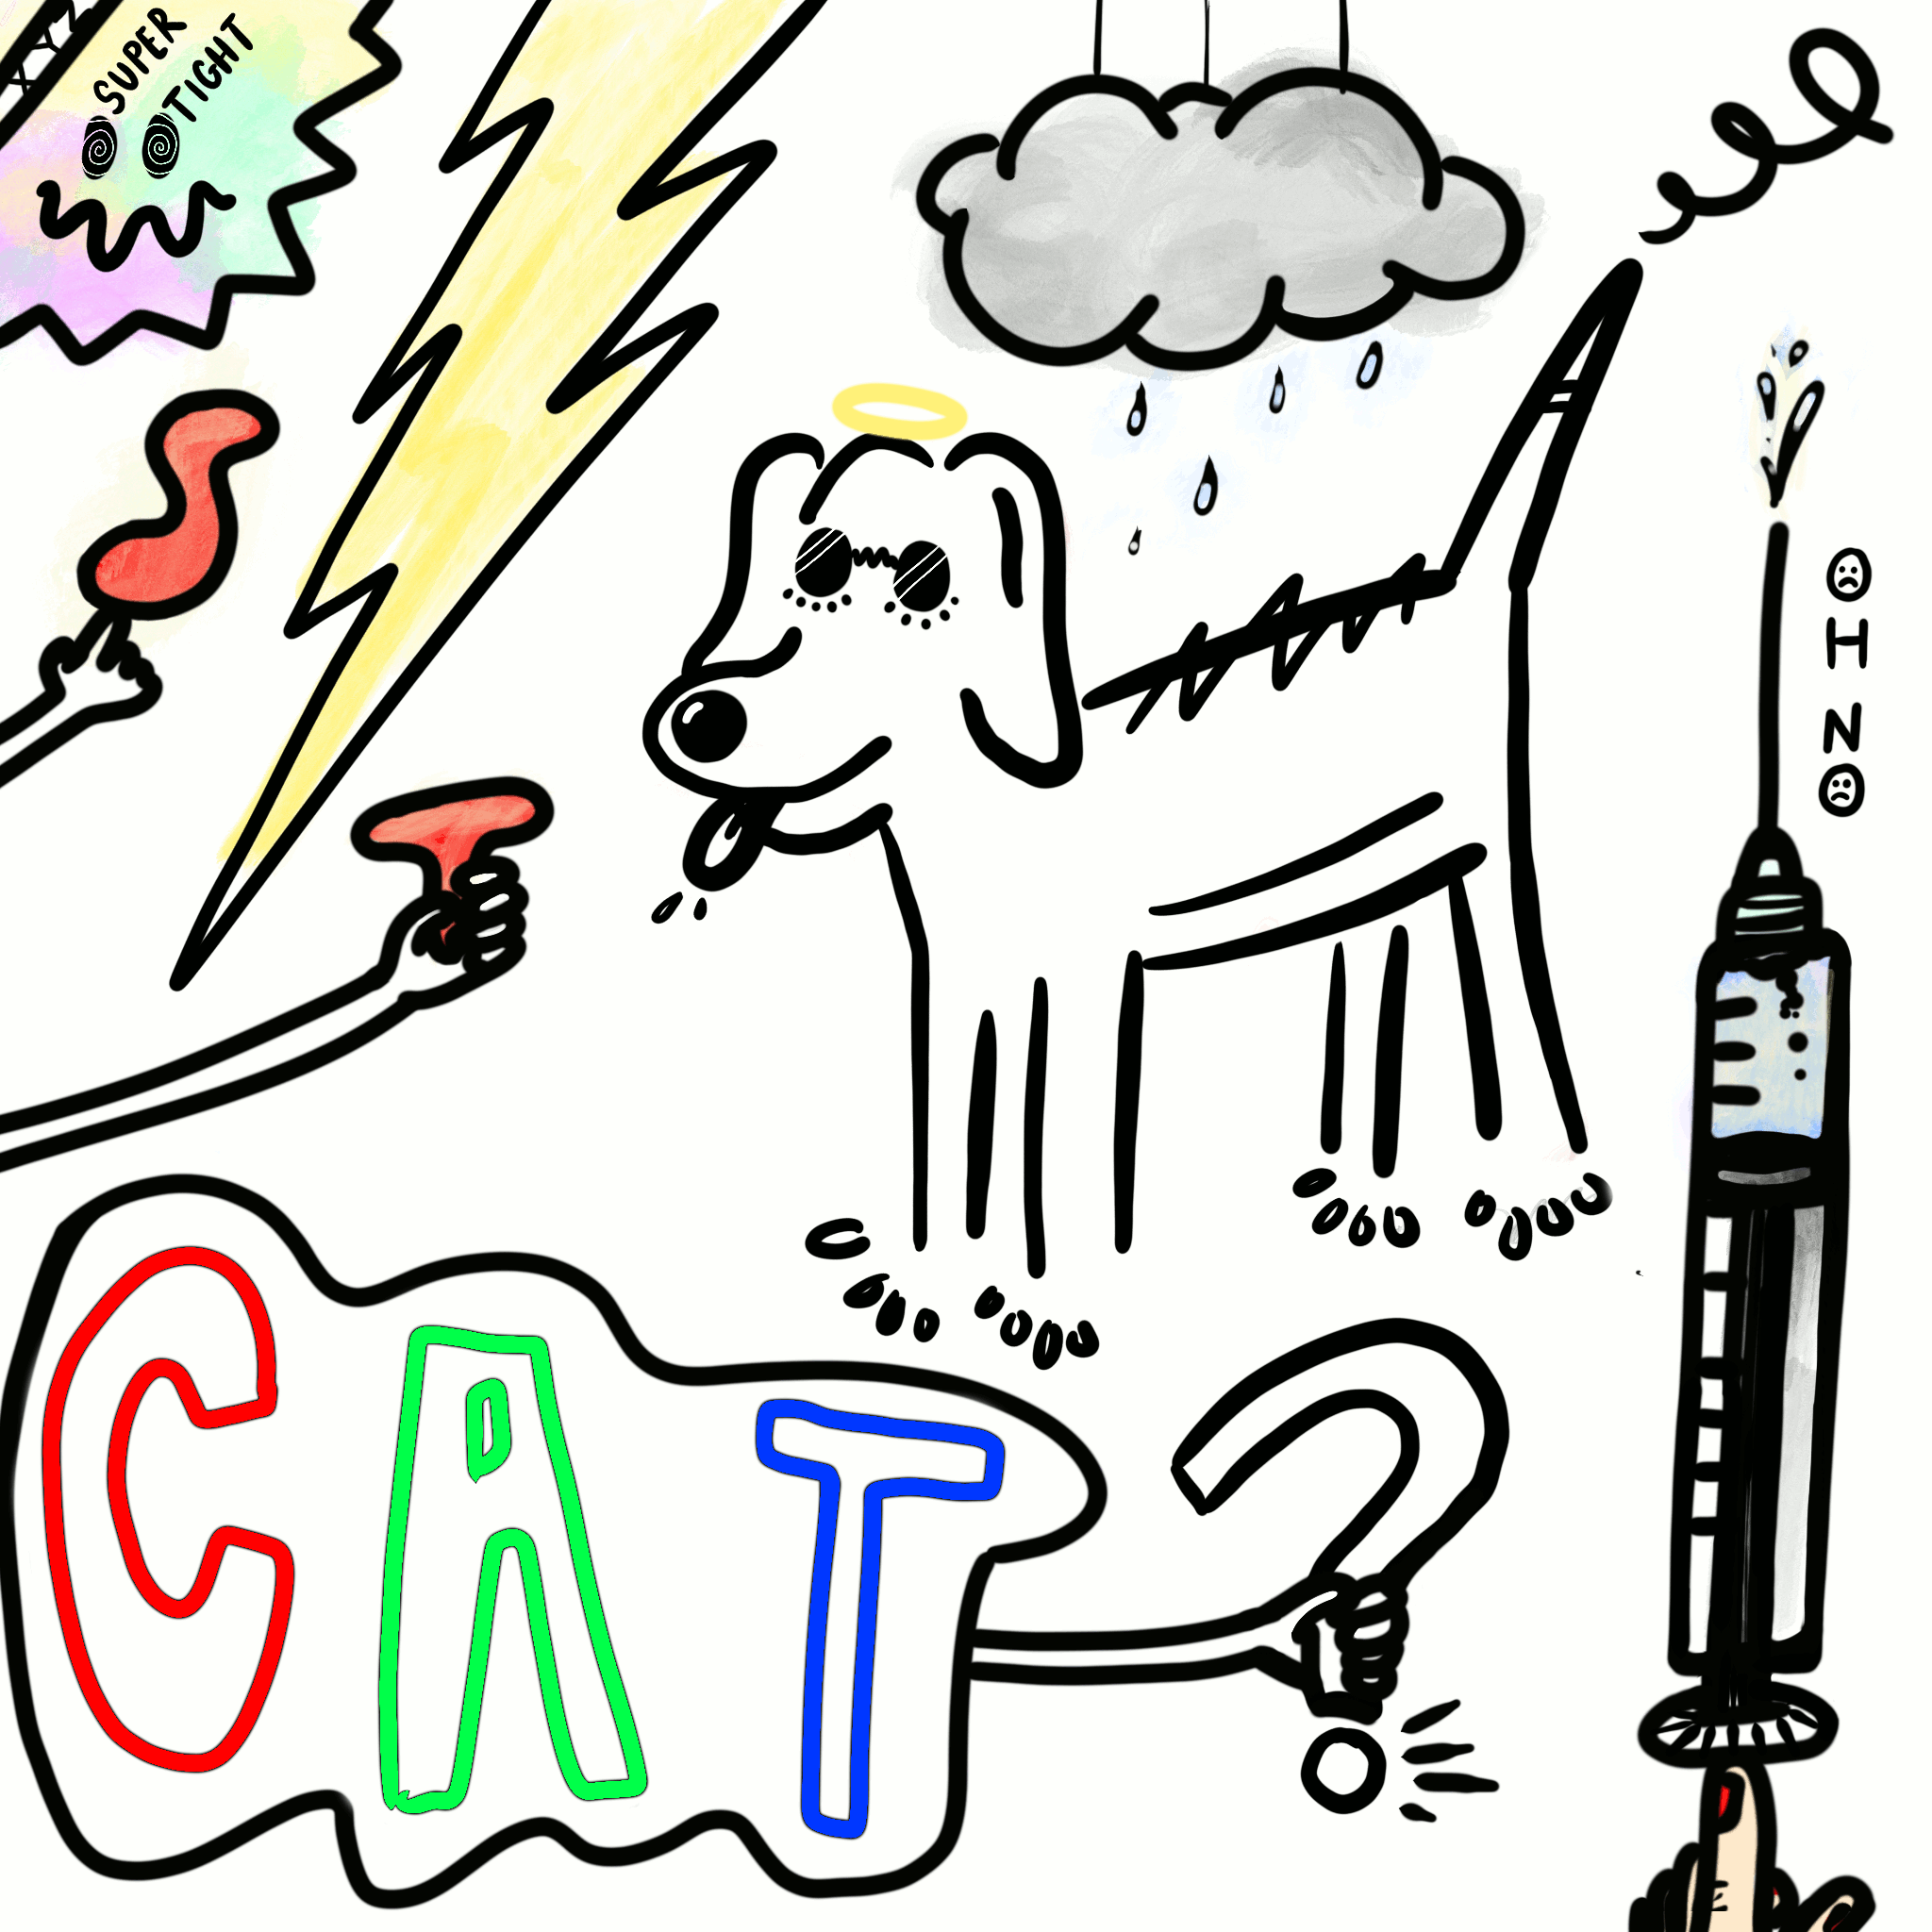 SUPER
TIGHT
OH NO
CAT?